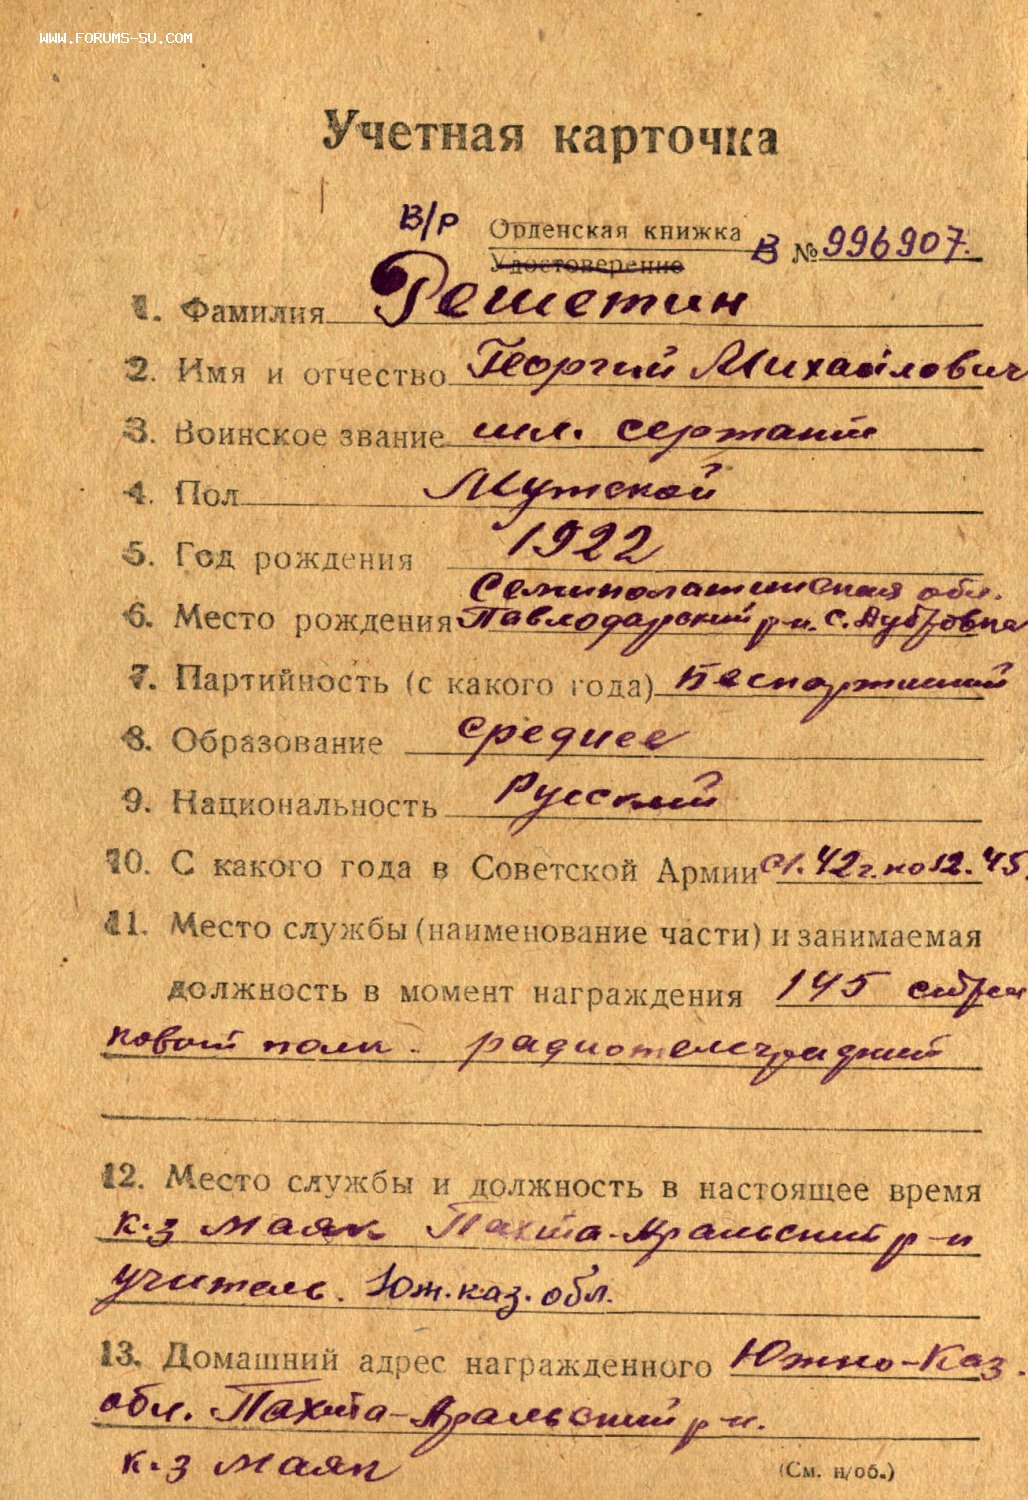 WWW.FORUMS-SU.COM
Учетная карточка
В/Р Орденская книжка В № 996907.
Удостоверение
1. Фамилия Решетин
2. Имя и отчество Георгий Михайлович
3. Воинское звание мл. сержант
4. Пол Мужской
5. Год рождения 1922
Семипалатинская обл.
6. Место рождения Павлодарский р-н. с. Дубровка
7. Партийность (с какого года) беспартийный
8. Образование среднее
9. Национальность Русский
10. С какого года в Советской Армии с 1.42 г. по 12.45.
11. Место службы (наименование части) и занимаемая
должность в момент награждения 145 стрел
ковый полк. радиотелеграфист
12. Место службы и должность в настоящее время
к-з Маяк Пахта-Аральский р-н
учитель. Юж. каз. обл.
13. Домашний адрес награжденного Южно-Каз.
обл. Пахта-Аральский р-н.
к-з Маяк
(См. н/об.)